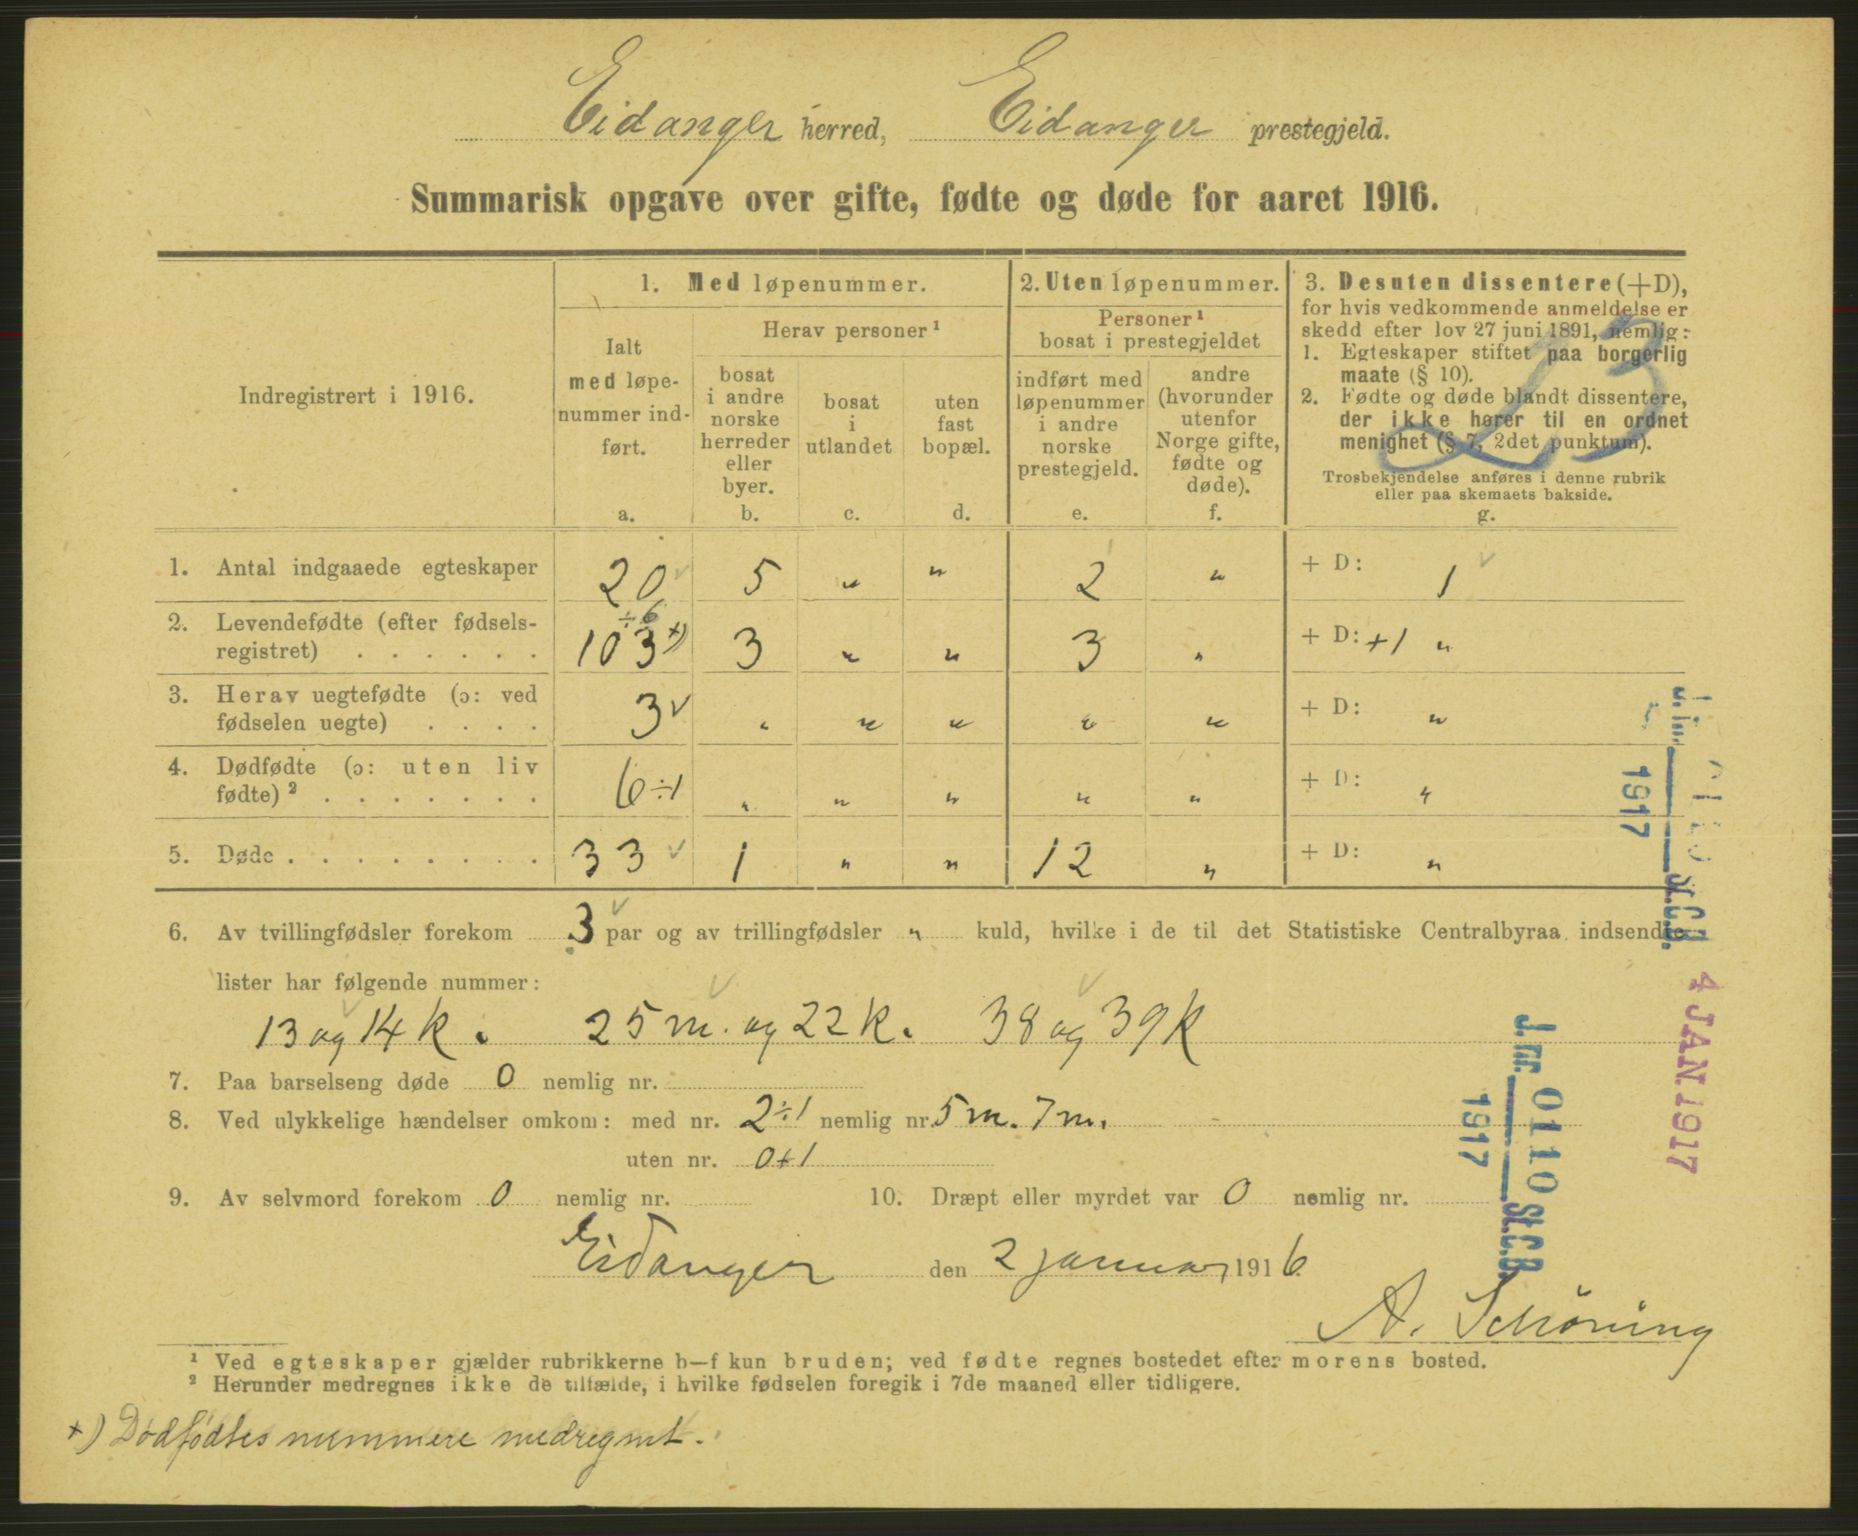 Eidanger herred, Eidanger prestegjeld.
Summarisk opgave over gifte, fødte og døde for aaret 1916.
Indregistrert i 1916.
1. Med løpenummer.
Ialt
med løpe-
nummer ind-
ført.
a.
Herav personer ¹
bosat
i andre
norske
herreder
eller
byer.
b.
bosat
i
utlandet
c.
uten
fast
bopæl.
d.
2. Uten løpenummer.
Personer ¹
bosat i prestegjeldet
indført med
løpenummer
i andre
norske
prestegjeld.
e.
andre
(hvorunder
utenfor
Norge gifte,
fødte og
døde).
f.
3. Desuten dissentere (+D),
for hvis vedkommende anmeldelse er
skedd efter lov 27 juni 1891, nemlig:
1. Egteskaper stiftet paa borgerlig
maate (§ 10).
2. Fødte og døde blandt dissentere,
der ikke hører til en ordnet
menighet (§ 7, 2det punktum).
Trosbekjendelse anføres i denne rubrik
eller paa skemaets bakside.
g.
23
1. Antal indgaaede egteskaper 20 ✓ 5 " " 2 " + D: 1 ✓
÷6
2. Levendefødte (efter fødsels-
registret) . . . . . . 103 +) 3 " " 3 " + D: +1 "
3. Herav uegtefødte (ɔ: ved
fødselen uegte) . . . . 3 ✓ " " " " " + D: "
4. Dødfødte (ɔ: uten liv
fødte) ² . . . . . . . 6÷1 " " " " " + D: "
5. Døde . . . . . . . . 33 ✓ 1 " " 12 " + D: "
6. Av tvillingfødsler forekom 3 par og av trillingfødsler " kuld, hvilke i de til det Statistiske Centralbyraa indsendte
lister har følgende nummer:
13 og 14 k. 25 m. og 22 k. 38 og 39 k
7. Paa barselseng døde 0 nemlig nr.
8. Ved ulykkelige hændelser omkom: med nr. 2÷1 nemlig nr. 5 m. 7 m.
uten nr. 0+1
9. Av selvmord forekom 0 nemlig nr.
10. Dræpt eller myrdet var 0 nemlig nr.
Eidanger den 2 januar 1916.
A. Schöning
¹ Ved egteskaper gjælder rubrikkerne b—f kun bruden; ved fødte regnes bostedet efter morens bosted.
² Herunder medregnes ikke de tilfælde, i hvilke fødselen foregik i 7de maaned eller tidligere.
+) Dødfødtes nummere medregnet.
J.nr. St.C.B.
1917
4 JAN. 1917
J.nr. 0110 St.C.B.
1917